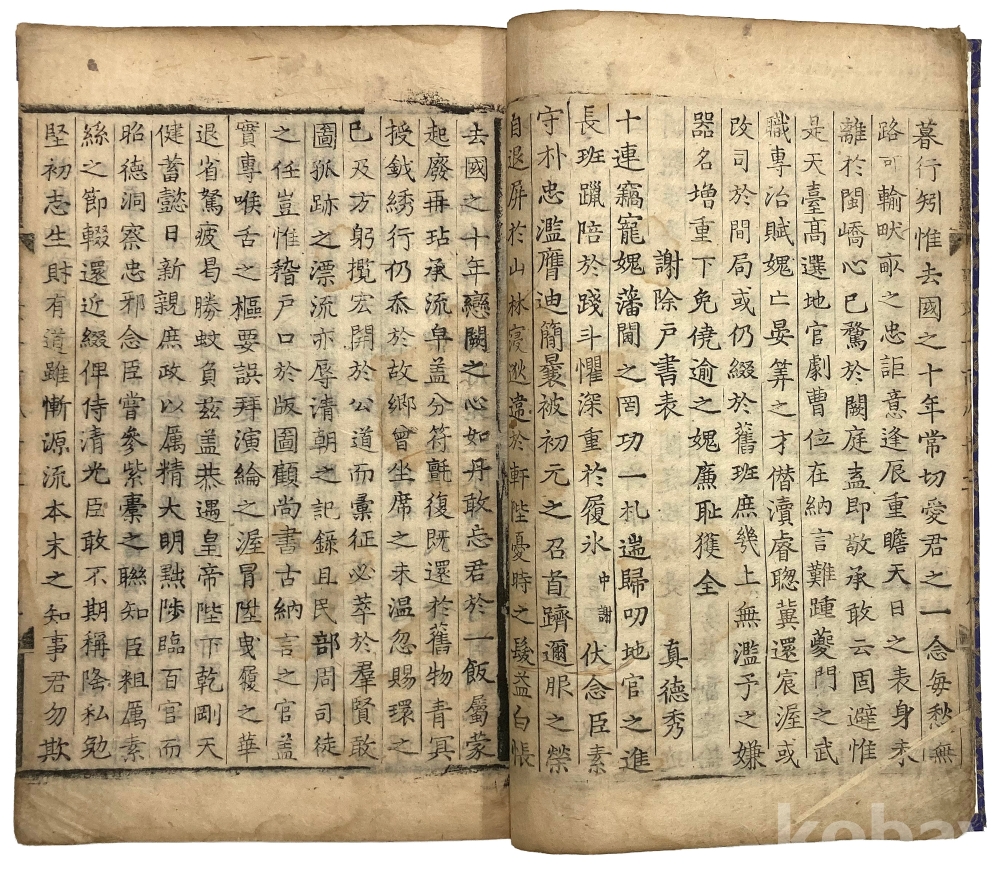 暮行矧惟去國之十年常切愛君之一念每愁無
路可輸畎畝之忠詎意逢辰重瞻天日之表身未
離於閩嶠心已騖於闕庭盍即敬承敢云固避惟
是天臺髙選地官劇曹位在納言難踵夔門之武
職專治賦媿亡晏筭之才僣瀆睿聦冀還宸渥或
改司於間局或仍綴於舊班庶幾上無濫予之嫌
器名増重下免僥逾之媿廉耻獲全
謝除户書表 真德秀
十連竊寵媿藩閫之罔功一札遄歸叨地官之進
長班躐陪於踐斗懼深重於履氷中謝伏念臣素
守朴忠濫膺迪簡曩被初元之召首躋邇班之榮
自退屏於山林寖逖違於軒陛憂時之髮益白悵
去國之十年戀闕之心如丹敢忘君於一飯屬蒙
起廢再玷承流皁盖分符氈復旣還於舊物青冥
授鉞綉行仍忝於故鄉曾坐席之未温忽賜環之
已及方躬攬宏開於公道而彚征必萃於羣賢敢
圖孤跡之漂流亦辱清朝之記録且民部周司徒
之任豈惟稽户口於版圖顧尚書古納言之官盖
實專喉舌之樞要誤拜演綸之渥冒陞曳履之華
退省駑疲曷勝蚊負兹盖恭遇皇帝陛下乾剛天
健蓄懿日新親庶政以厲精大明黜陟臨百官而
昭德洞察忠邪念臣嘗參紫橐之聮知臣粗厲素
絲之節輟還近綴俾侍清光臣敢不期稱隆私勉
堅初志生財有道雖慚源流本末之知事君勿欺
kobay